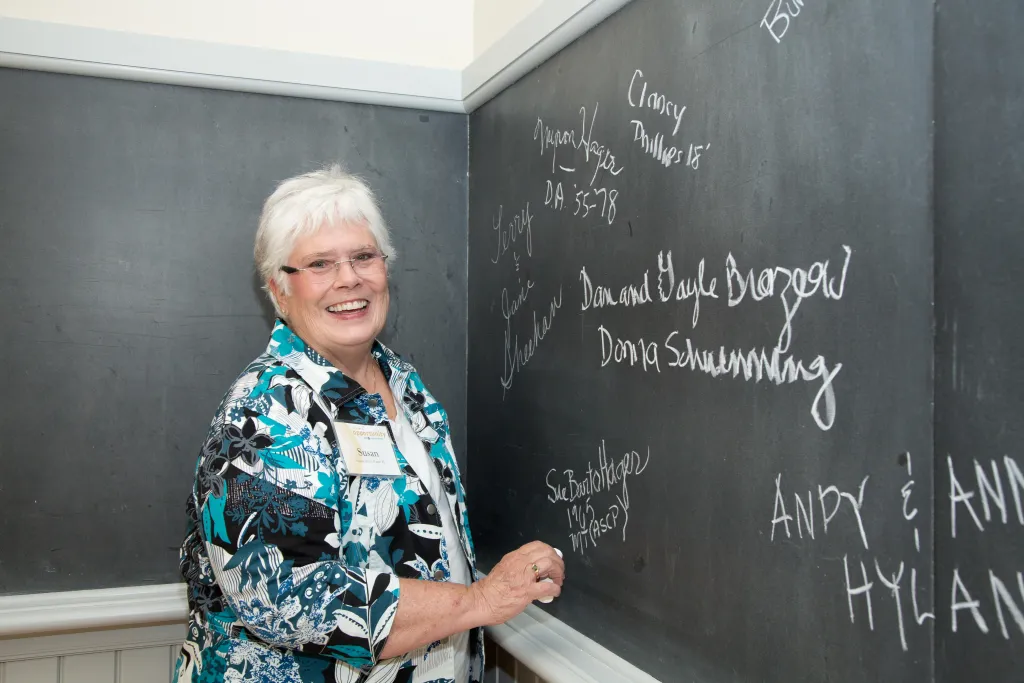 Clancy
Phillips 18'
Myron Hager
DA '55-78
Terry
&
Jane
Sheehan
Dan and Gayle Brozgow
Donna Schumming
Sue Bovitz Hager
1965
MT (ASCP)
ANDY & ANN
HYLAN
Susan